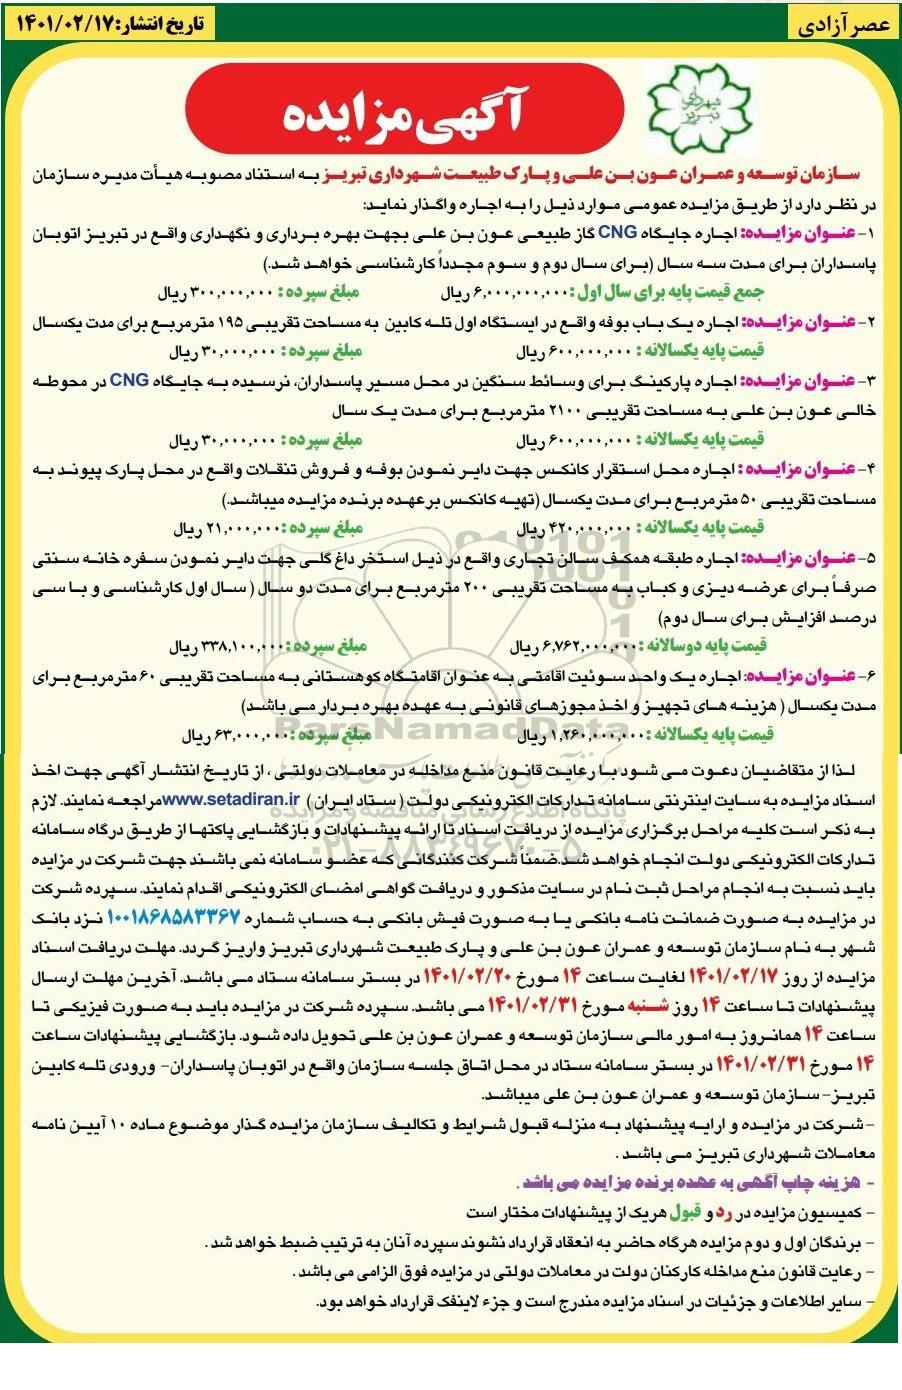 عصر آزادی
تاریخ انتشار: ۱۴۰۱/۰۲/۱۷
شهرداری تبریز
آگهی مزایده
سازمان توسعه و عمران عون بن علی و پارک طبیعت شهرداری تبریز به استناد مصوبه هیأت مدیره سازمان
در نظر دارد از طریق مزایده عمومی موارد ذیل را به اجاره واگذار نماید:
۱- عنوان مزایده: اجاره جایگاه CNG گاز طبیعی عون بن علی بجهت بهره برداری و نگهداری واقع در تبریز اتوبان
پاسداران برای مدت سه سال (برای سال دوم و سوم مجدداً کارشناسی خواهد شد.)
جمع قیمت پایه برای سال اول: ۶,۰۰۰,۰۰۰,۰۰۰ ریال مبلغ سپرده: ۳۰۰,۰۰۰,۰۰۰ ریال
۲- عنوان مزایده: اجاره یک باب بوفه واقع در ایستگاه اول تله کابین به مساحت تقریبی ۱۹۵ مترمربع برای مدت یکسال
قیمت پایه یکسالانه: ۶۰۰,۰۰۰,۰۰۰ ریال مبلغ سپرده: ۳۰,۰۰۰,۰۰۰ ریال
۳- عنوان مزایده: اجاره پارکینگ برای وسائط سنگین در محل مسیر پاسداران، نرسیده به جایگاه CNG در محوطه
خالی عون بن علی به مساحت تقریبی ۲۱۰۰ مترمربع برای مدت یک سال
قیمت پایه یکسالانه: ۶۰۰,۰۰۰,۰۰۰ ریال مبلغ سپرده: ۳۰,۰۰۰,۰۰۰ ریال
۴- عنوان مزایده: اجاره محل استقرار کانکس جهت دایر نمودن بوفه و فروش تنقلات واقع در محل پارک پیوند به
مساحت تقریبی ۵۰ مترمربع برای مدت یکسال (تهیه کانکس برعهده برنده مزایده میباشد.)
قیمت پایه یکسالانه: ۴۲۰,۰۰۰,۰۰۰ ریال مبلغ سپرده: ۲۱,۰۰۰,۰۰۰ ریال
۵- عنوان مزایده: اجاره طبقه همکف سالن تجاری واقع در ذیل استخر داغ گلی جهت دایر نمودن سفره خانه سنتی
صرفاً برای عرضه دیزی و کباب به مساحت تقریبی ۲۰۰ مترمربع برای مدت دو سال ( سال اول کارشناسی و با سی
درصد افزایش برای سال دوم)
قیمت پایه دوسالانه: ۶,۷۶۲,۰۰۰,۰۰۰ ریال مبلغ سپرده: ۳۳۸,۱۰۰,۰۰۰ ریال
۶- عنوان مزایده: اجاره یک واحد سوئیت اقامتی به عنوان اقامتگاه کوهستانی به مساحت تقریبی ۶۰ مترمربع برای
مدت یکسال ( هزینه های تجهیز و اخذ مجوزهای قانونی به عهده بهره بردار می باشد)
قیمت پایه یکسالانه: ۱,۲۶۰,۰۰۰,۰۰۰ ریال مبلغ سپرده: ۶۳,۰۰۰,۰۰۰ ریال
ParsNamadData
لذا از متقاضیان دعوت می شود با رعایت قانون منع مداخله در معاملات دولتی ، از تاریخ انتشار آگهی جهت اخذ
اسناد مزایده به سایت اینترنتی سامانه تدارکات الکترونیکی دولت ( ستاد ایران ) www.setadiran.ir مراجعه نمایند. لازم
پایگاه اطلاع رسانی مناقصه و مزایده
به ذکر است کلیه مراحل برگزاری مزایده از دریافت اسناد تا ارائه پیشنهادات و بازگشایی پاکتها از طریق درگاه سامانه
۰۲۱-۸۸۳۴۹۶۷۰-۵
تدارکات الکترونیکی دولت انجام خواهد شد.ضمناً شرکت کنندگانی که عضو سامانه نمی باشند جهت شرکت در مزایده
باید نسبت به انجام مراحل ثبت نام در سایت مذکور و دریافت گواهی امضای الکترونیکی اقدام نمایند. سپرده شرکت
در مزایده به صورت ضمانت نامه بانکی یا به صورت فیش بانکی به حساب شماره ۱۰۰۱۸۶۸۵۸۳۳۶۷ نزد بانک
شهر به نام سازمان توسعه و عمران عون بن علی و پارک طبیعت شهرداری تبریز واریز گردد. مهلت دریافت اسناد
مزایده از روز ۱۴۰۱/۰۲/۱۷ لغایت ساعت ۱۴ مورخ ۱۴۰۱/۰۲/۲۰ در بستر سامانه ستاد می باشد. آخرین مهلت ارسال
پیشنهادات تا ساعت ۱۴ روز شنبه مورخ ۱۴۰۱/۰۲/۳۱ می باشد. سپرده شرکت در مزایده باید به صورت فیزیکی تا
ساعت ۱۴ همانروز به امور مالی سازمان توسعه و عمران عون بن علی تحویل داده شود. بازگشایی پیشنهادات ساعت
۱۴ مورخ ۱۴۰۱/۰۲/۳۱ در بستر سامانه ستاد در محل اتاق جلسه سازمان واقع در اتوبان پاسداران- ورودی تله کابین
تبریز- سازمان توسعه و عمران عون بن علی میباشد.
- شرکت در مزایده و ارایه پیشنهاد به منزله قبول شرایط و تکالیف سازمان مزایده گذار موضوع ماده ۱۰ آیین نامه
معاملات شهرداری تبریز می باشد .
- هزینه چاپ آگهی به عهده برنده مزایده می باشد .
- کمیسیون مزایده در رد و قبول هریک از پیشنهادات مختار است
- برندگان اول و دوم مزایده هرگاه حاضر به انعقاد قرارداد نشوند سپرده آنان به ترتیب ضبط خواهد شد .
- رعایت قانون منع مداخله کارکنان دولت در معاملات دولتی در مزایده فوق الزامی می باشد .
- سایر اطلاعات و جزئیات در اسناد مزایده مندرج است و جزء لاینفک قرارداد خواهد بود.